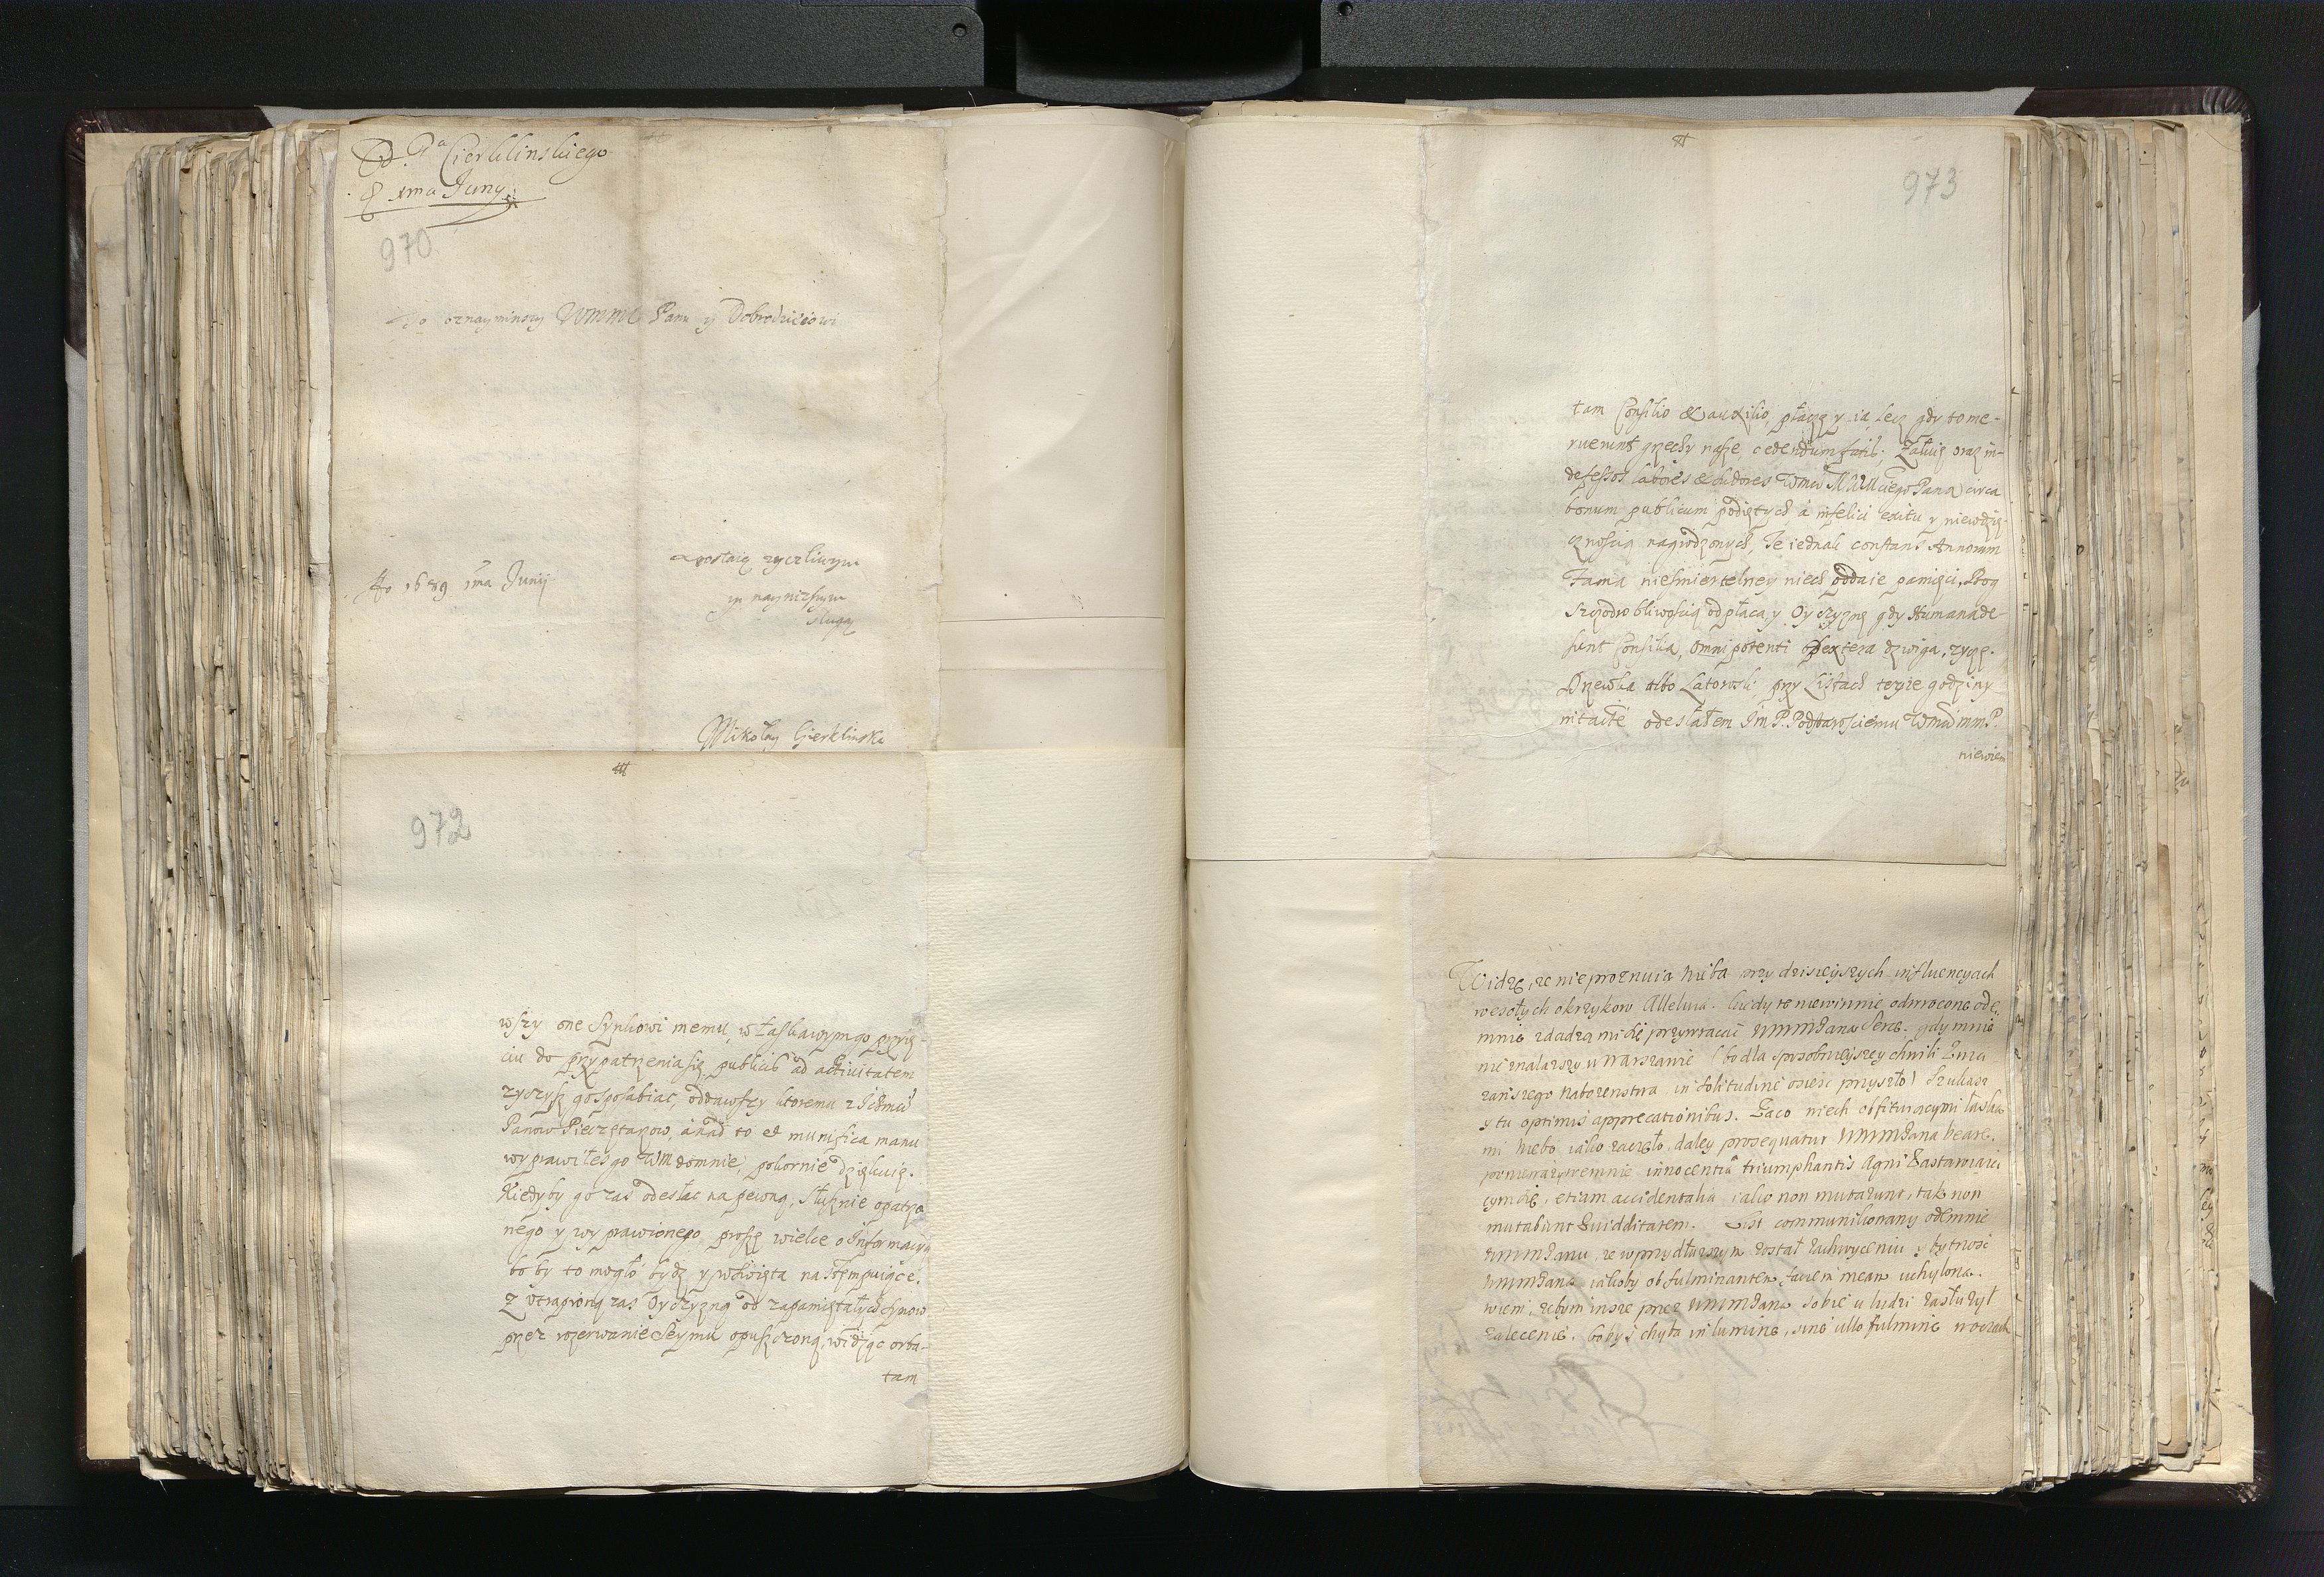 Od Pa Gierklinskiego
d 1ma Juny
970
to oznaymiwszy WMMM Panu y Dobrodzieiowi
zostaię zyczliwym
Ao 1689 1ma Junij
y naynizszym
sługą
Mikołay Gierklinski
972
wszy one Synkowi memu, w łaskawym go przyię-
ciu do przypatrzenia się publicis ad activitatem
zyczysz go sposabiac, oddawszy ktoremu z Ichmciow
Panow Pieczętarzow, a nad to et munifica manu
wyprawiłes go WM do mnie, pokornie dziękuię.
Kiedyby go zas odesłac na pewną, słusznie opatrzo
nego y wyprawionego proszę wielce o Informacyą
bo by to mogło bydz y w Swięta nastempuiące.
Z utrapioną zas Oyczyzną od zapamiętałych synow
przez rozerwanie Seymu opuszczoną, widząc orba-
tam
973
tam Consilio & auxilio, płaczę y ia, lecz gdy to me-
ruerunt grzechy nasze, cedendum fatis. Załuię oraz in-
defessos labores & sudores Pana circa
bonum publicum podiętych a infelici exitu y niewdzię-
cznoscią nagrodzonych, Te iednak constans Annorum
Fama niesmiertelney niech poddaie pamięci, Bog
szczodrobliwoscią odpłaca, y Oyczyznę gdy Humana de-
sunt Consilia, omnipotenti dextera dzwiga, zyczę.
Drzewka albo Latorosli przy Listach teyze godziny
intacte odesłałem Im P. Podstarosciemu
niewiem
Widzę, ze nie proznuią Nieba przy dzisieyszych influencyach
wesołych okrzykow Alleluia. kiedy te niewinnie odwrocone ode-
mnie zdadzą mi się przywracać WMMPana Serce. gdy mnie
nie znalazszy w Warszawie (bo dla sposobnieyszey chwili
nabozenstwa in solitudine osiesc przyszło) Szukasz
y tu optimis apprecationibus. Za co niech obfituiącymi łaska
mi Niebo iako zaczeło, daley prosequatur WMMPana beare.
innocentia triumphantis Agni Zastawiaią
cym się, etiam accidentalia iako non mutarunt, tak non
mutabunt Quidditatem. List communikowany odemnie
WMMPanu, ze w przydłuzszym został zachwyceniu y bytnosc
WMMPana iakoby ob fulminantem faciem meam uchylona.
wiem, zebym insze przez WMMPana sobie u ludzi zasłuzył
zalecenie. bo bys chyba in lumine, sine ullo fulmine w oczach